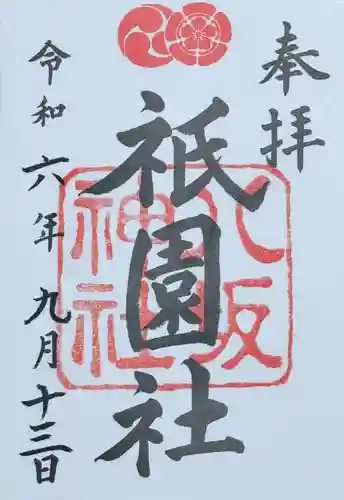 奉拝
祇園社
八坂
神社
令和六年九月十三日